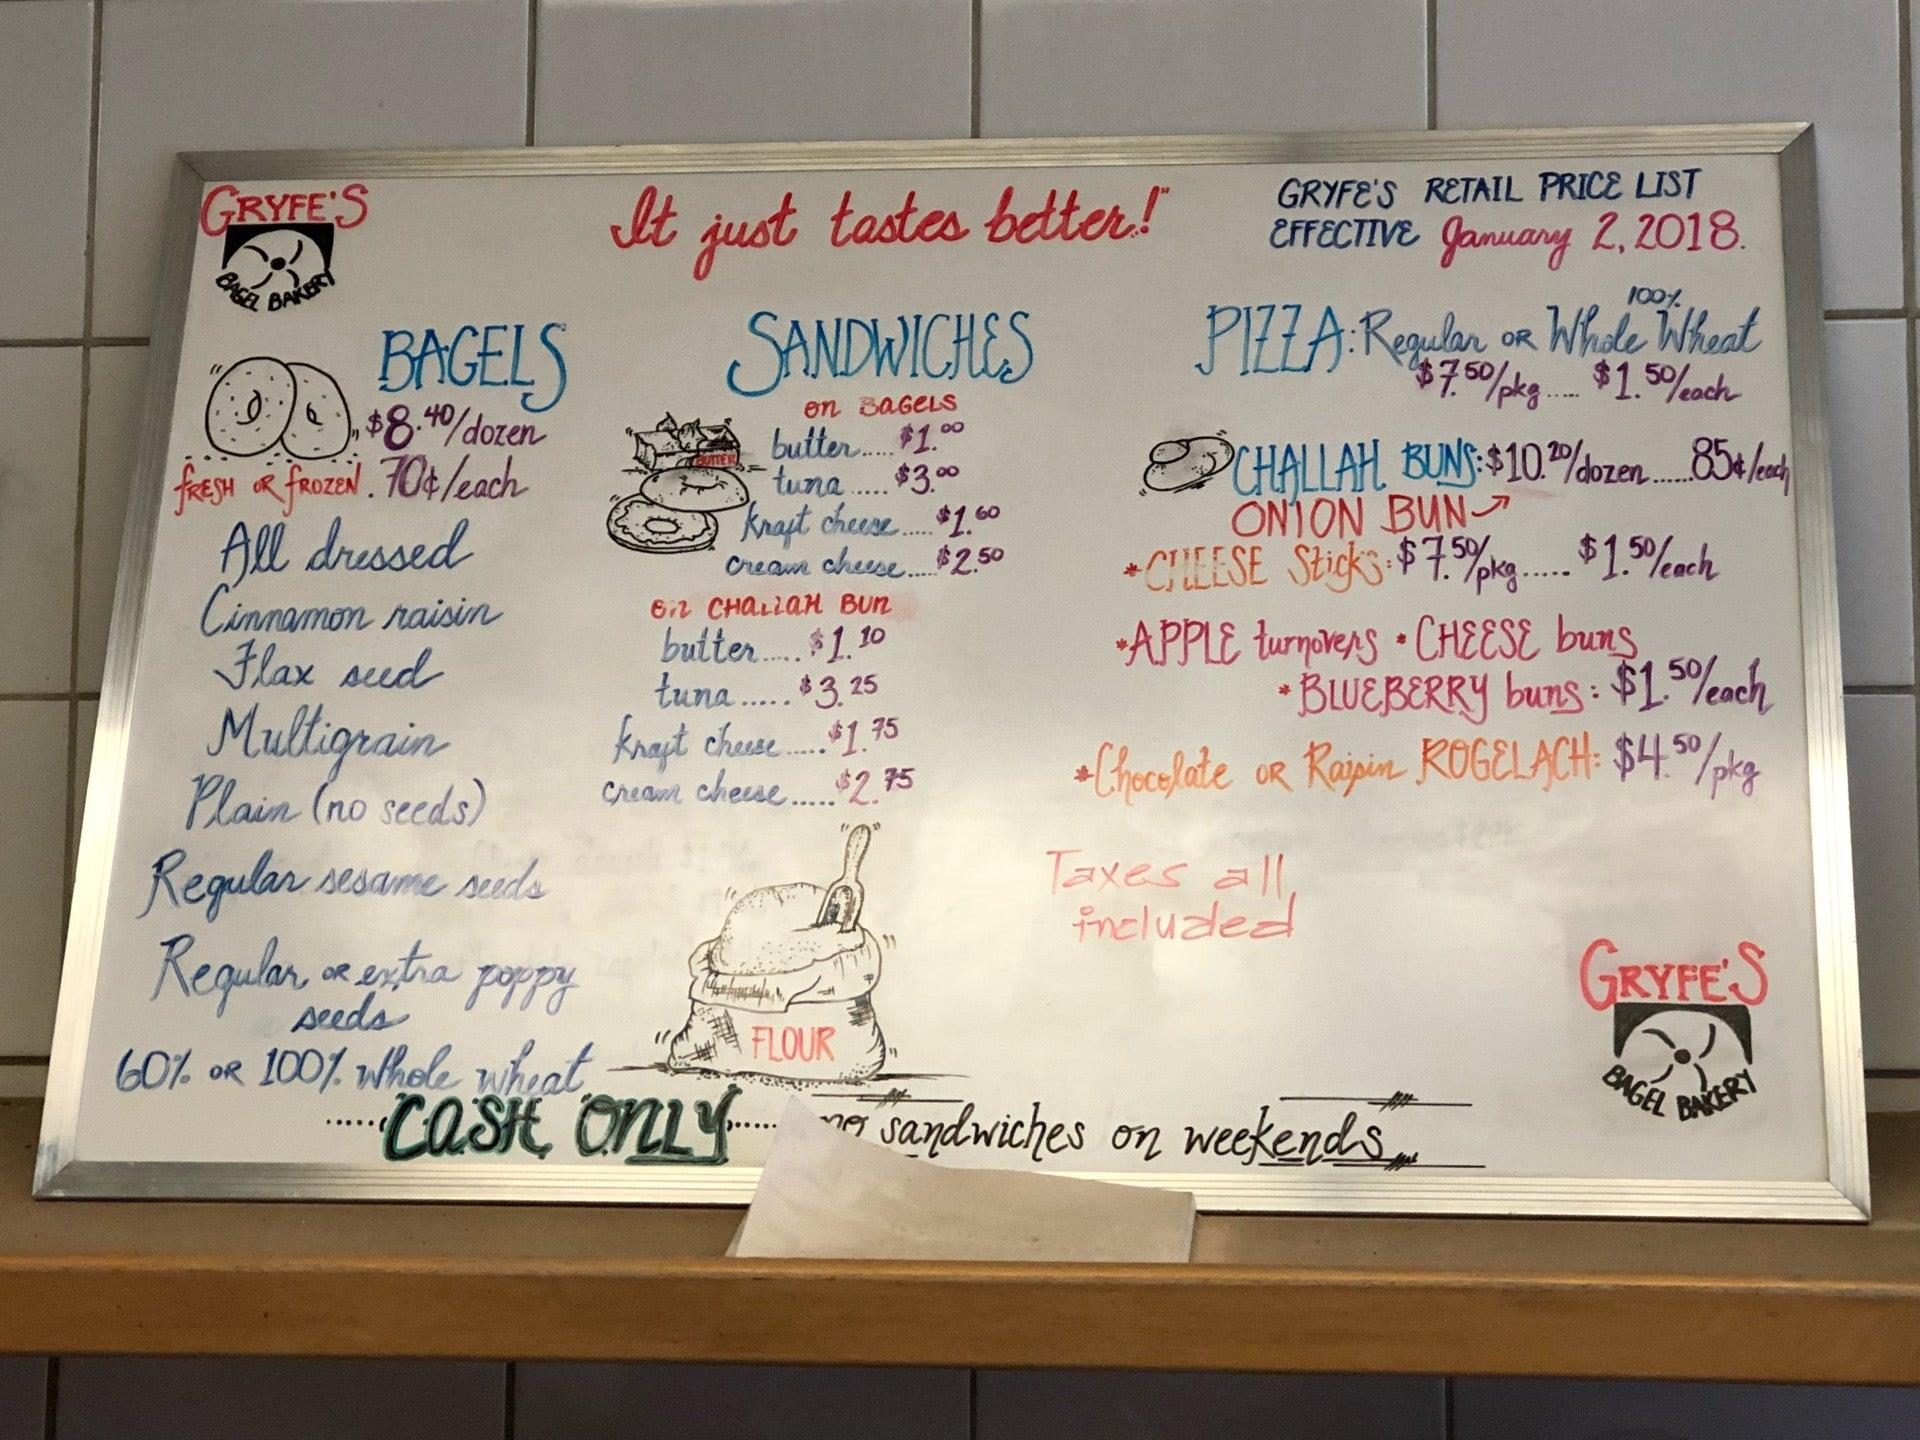 GRYFE'S
BAGEL BAKERY
It just tastes better!"
GRYFE'S RETAIL PRICE LIST
EFFECTIVE January 2, 2018.
BAGELS
$8.40/dozen
fRESH OR fROZEN. 70¢/each
All dressed
Cinnamon raisin
Flax seed
Multigrain
Plain (no seeds)
Regular sesame seeds
Regular OR extra poppy
seeds
60% OR 100% Whole wheat
SANDWICHES
on BAGELS
BUTTER
butter..... $1.00
tuna ..... $3.00
kraft cheese..... $1.60
cream cheese.... $2.50
on CHALLAH BUN
butter..... $1.10
tuna ...... $3.25
kraft cheese ..... $1.75
cream cheese ..... $2.75
FLOUR
PIZZA: Regular OR 100% Whole Wheat
$7.50/pkg ..... $1.50/each
CHALLAH BUNS: $10.20/dozen ...... 85¢/each
ONION BUN
*CHEESE Sticks: $7.50/pkg ..... $1.50/each
*APPLE turnovers *CHEESE buns
*BLUEBERRY buns: $1.50/each
*Chocolate OR Raisin ROGELACH: $4.50/pkg
Taxes all
included
GRYFE'S
BAGEL BAKERY
.....CASH ONLY..... no sandwiches on weekends